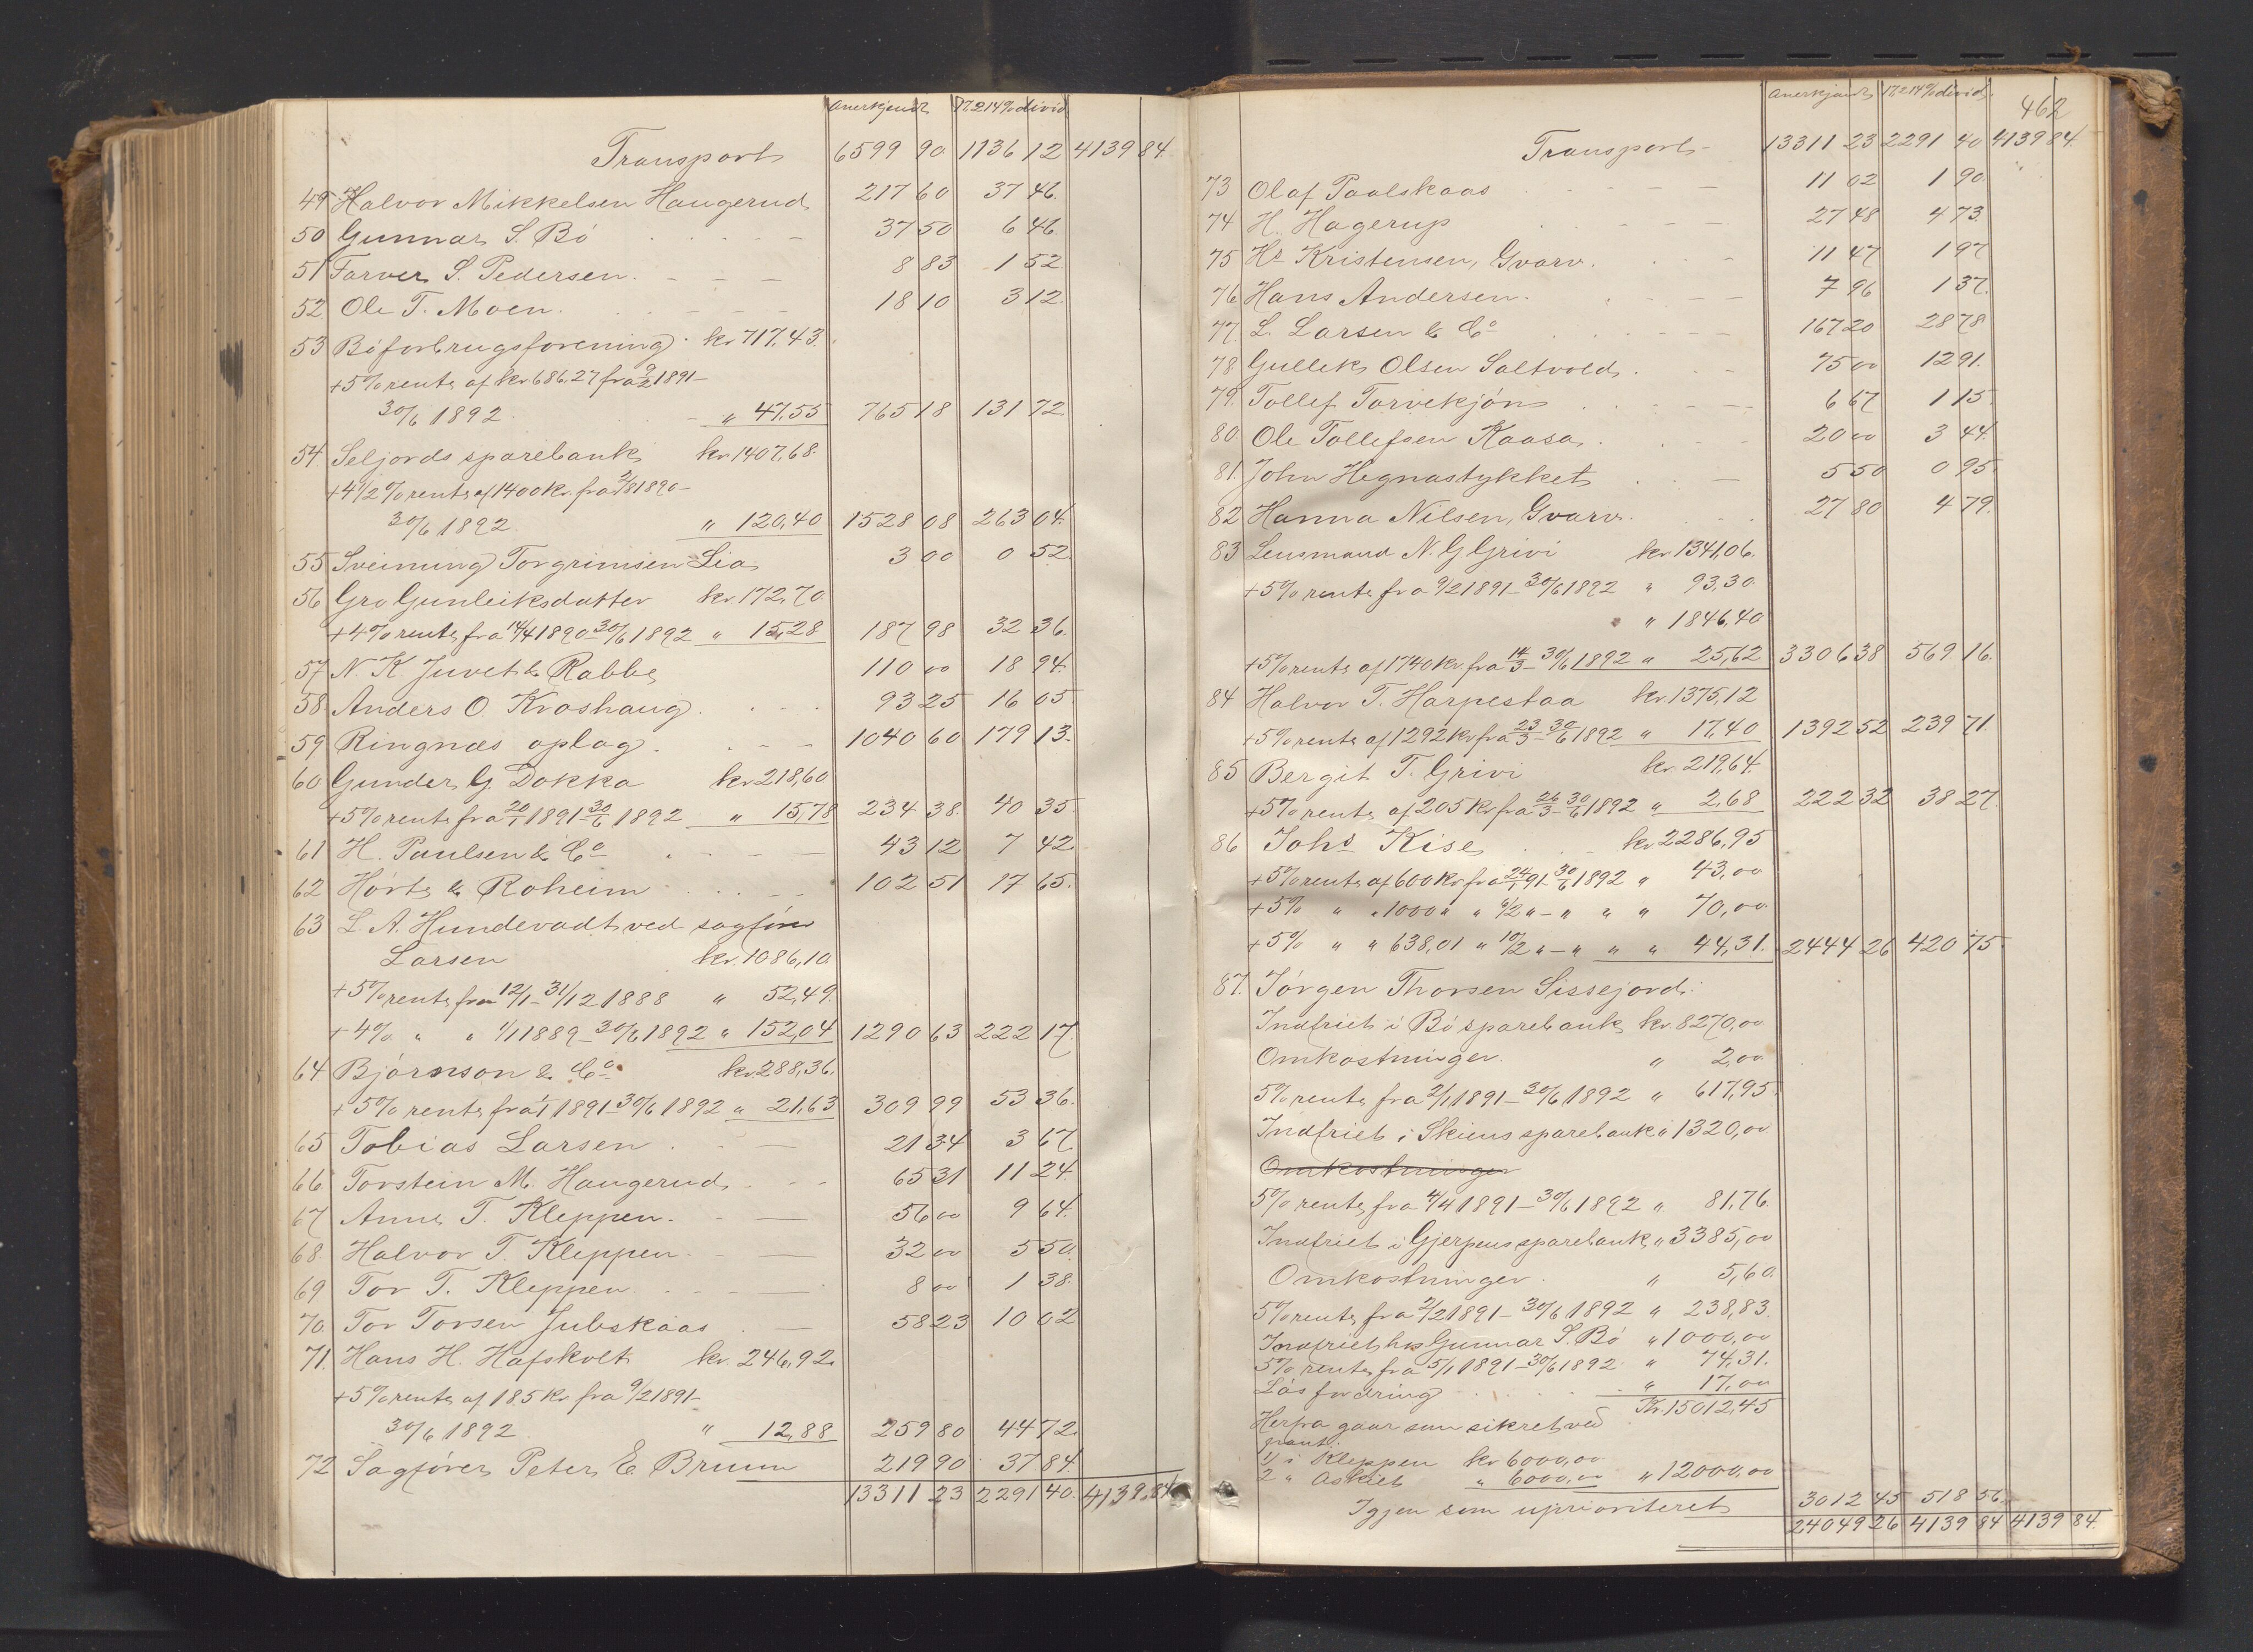 Anerkjendt 17.214% divid.
Transport 6599 90 1136 12 4139 84
49 Halvor Mikkelsen Haugerud 217 60 37 46.
50 Gunnar S. Bö 37 50 6 46.
51 Farver S. Pedersen. 8 83 1 52
52 Ole T. Moen. 18 10 3 12.
53 Böforbrugsforening kr 717,43.
+5% rente af kr 686,27 fra 9/2 1891-
30/6 1892. " 47,55 765 18 131 72
54. Seljords sparebank kr 1407,68.
+4 1/2 % rente af 1400 Kr. fra 2/8 1890-
30/6 1892. " 120,40 1528 08 263 04.
55 Sveinung Torgrimsen Lia 3 00 0 52
56 Gro Gunleiksdatter kr. 172,70.
+4% rente fra 14/4 1890-30/6 1892 " 15,28 187 98 32 36.
57 N. K Juvet & Rabbe 110 00 18 94.
58. Anders O. Kroshaug. 93 25 16 05
59 Ringnæs oplag. 1040 60 179 13.
60 Gunder G. Dokka kr 218,60
+5% rente fra 20/1 1891 30/6 1892 " 15,78 234 38. 40 35.
61 H. Paulsen & Co 43 12 7 42.
62 Hörte & Roheim 102 51 17 65.
63 L. A. Hundevadt ved sagförer
Larsen kr. 1086,10.
+5% rente fra 12/1-31/12 1888 " 52,49.
+4% " " 1/1 1889-30/6 1892 " 152,04 1290 63 222 17.
64 Björnson & Co. kr. 288,36.
+5% rente fra 1/1 1891-30/6 1892 " 21,63 309 99 53 36.
65 Tobias Larsen 21 34 3 67
66 Torstein M. Haugerud 65 31 11 24.
67 Anne T. Kleppen. 56 00 9 64.
68. Halvor T. Kleppen 32 00 5 50.
69 Tor T. Kleppen 8 00 1 38.
70. Tor Torsen Jubskaas 58 23 10 02
71. Hans H. Hafskolt kr. 246,92.
+5% rente af 185 Kr fra 9/2 1891-
30/6 1892 " 12,88 259 80 44 72.
72 Sagförer Peter E. Bruun 219 90 37 84.
13311 23 2291 40. 4139,84
Anerkjendt 17.214% divid.
462
Transport 13311 23 2291 40 4139 84.
73 Olaf Paalskaas 11 02 1 90.
74 H. Hagerup 27 48 4 73.
75 Hr Kristensen, Gvarv. 11 47 1 97
76 Hans Andersen. 7 96 1 37.
77. L. Larsen & Co 167 20 28 78
78 Gullek Olsen Saltvold. 75 00 12 91.
79. Tollef Torvekjön 6 67 1 15.
80. Ole Tollefsen Kaasa. 20 00 3 44.
81. John Hegnastykket 5 50 0 95
82 Hanna Nilsen, Gvarv. 27 80 4 79.
83 Lensmand N. G Grivi kr 1341,06.
+5% rente fra 9/2 1891-30/6 1892 " 93,30.
" 1846,40
+5% rente af 1740 Kr. fra 14/3-30/6 1892 " 25,62 3306 38 569 16.
84 Halvor T. Harpestaa kr. 1375,12
+5% rente af 1292 Kr fra 23/3-30/6 1892 " 17,40 1392 52 239 71.
85 Bergit T. Grivi kr. 219,64.
+5% rente af 205 Kr fra 26/3-30/6 1892 " 2,68 222 32 38 27.
86 Johs Kise kr 2286,95
+5% rente af 600 Kr fra 24/1 91-30/6 1892 " 43,00
+5% " " 1000 " " 6/2 "-" " " 70,00.
+5% " " 638,01 " 10/2 "-" " " 44,31. 2444 26 420 75.
87. Jörgen Thorsen Sissejord:
Indfriet i Bö sparebank kr. 8270,00
Omkostninger. " 2,00.
5% rente fra 2/1 1891-30/6 1892 " 617,95.
Indfriet i Skiens sparebank " 1320,00
Omkostninger
5% rente fra 4/4 1891-30/6 1892 " 81,76.
Indfriet i Gjerpens sparebank " 3385,00
Omkostninger. " 5,60.
5% rente fra 2/2 1891-30/6 1892 " 238,83.
Indfriet hos Gunnar S. Bö " 1000,00
5% rente fra 5/1 1891-30/6 1892 " 74,31.
Lös fordring " 17,00
Kr. 15012,45
Herfra gaar som sikret ved
pant:
1/ i Kleppen kr 6000,00
2 " Askiet " 6000,00 " 12000,00
Igjen som uprioriteret 3012 45 518 56.
24049 26 4139 84 4139 84.